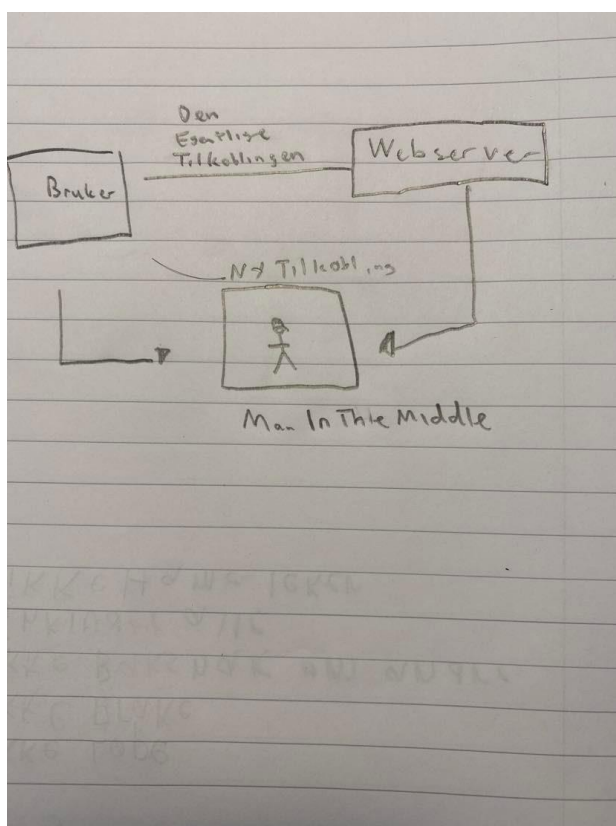 Den
Egentlige
Tilkoblingen
Webserver
Bruker
Ny Tilkobling
Man In The Middle